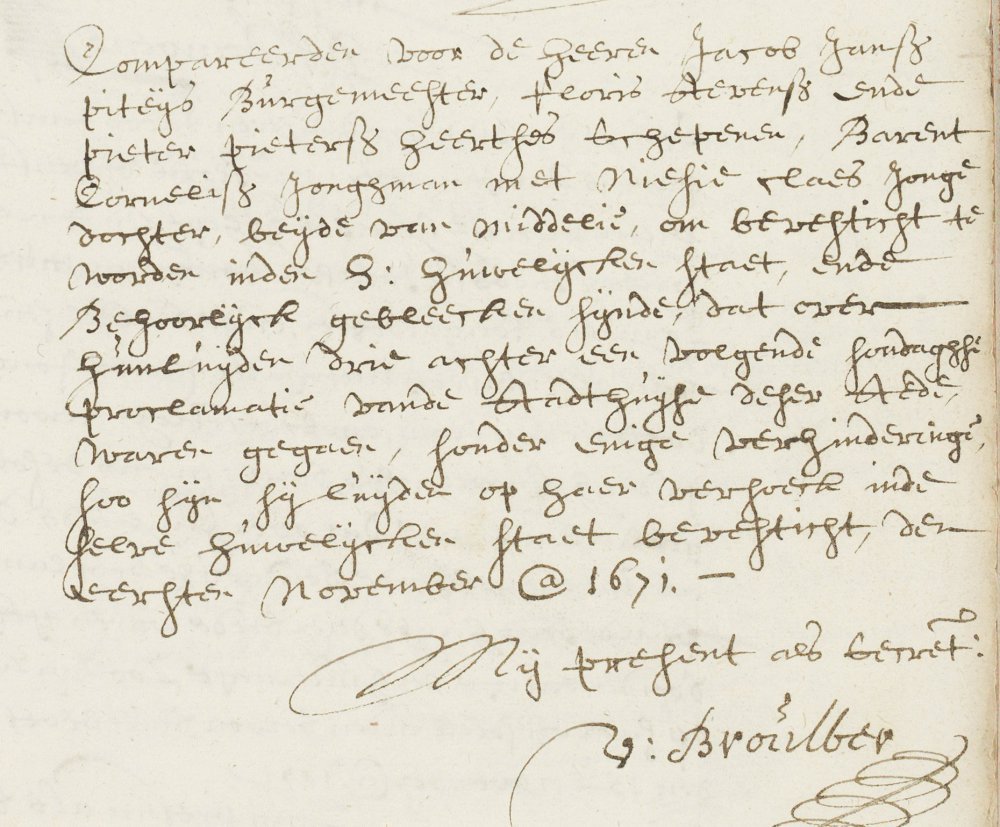 Compareerden voor de heeren Jacob Janss
piteijs Burgemeester, Floris Stevenss ende
pieter pieterss heertses Schepenen, Barent
Corneliss Jonghman met Niesie claes Jonge
dochter, beijde van Middelie, om bevesticht te
worden inden H: huwelijcken staet, ende
Behoorlijck gebleecken sijnde, dat over
hunluijden drie achter een volgende sondaghse
proclamatie vande Stadthuijse deser Stede,
waren gegaen, sonder enige verhinderinge,
soo sijn sijluijden op haer versoeck inde
selve huwelijcken staet bevesticht, den
eersten November @ 1671. —
Mij present als Secret: